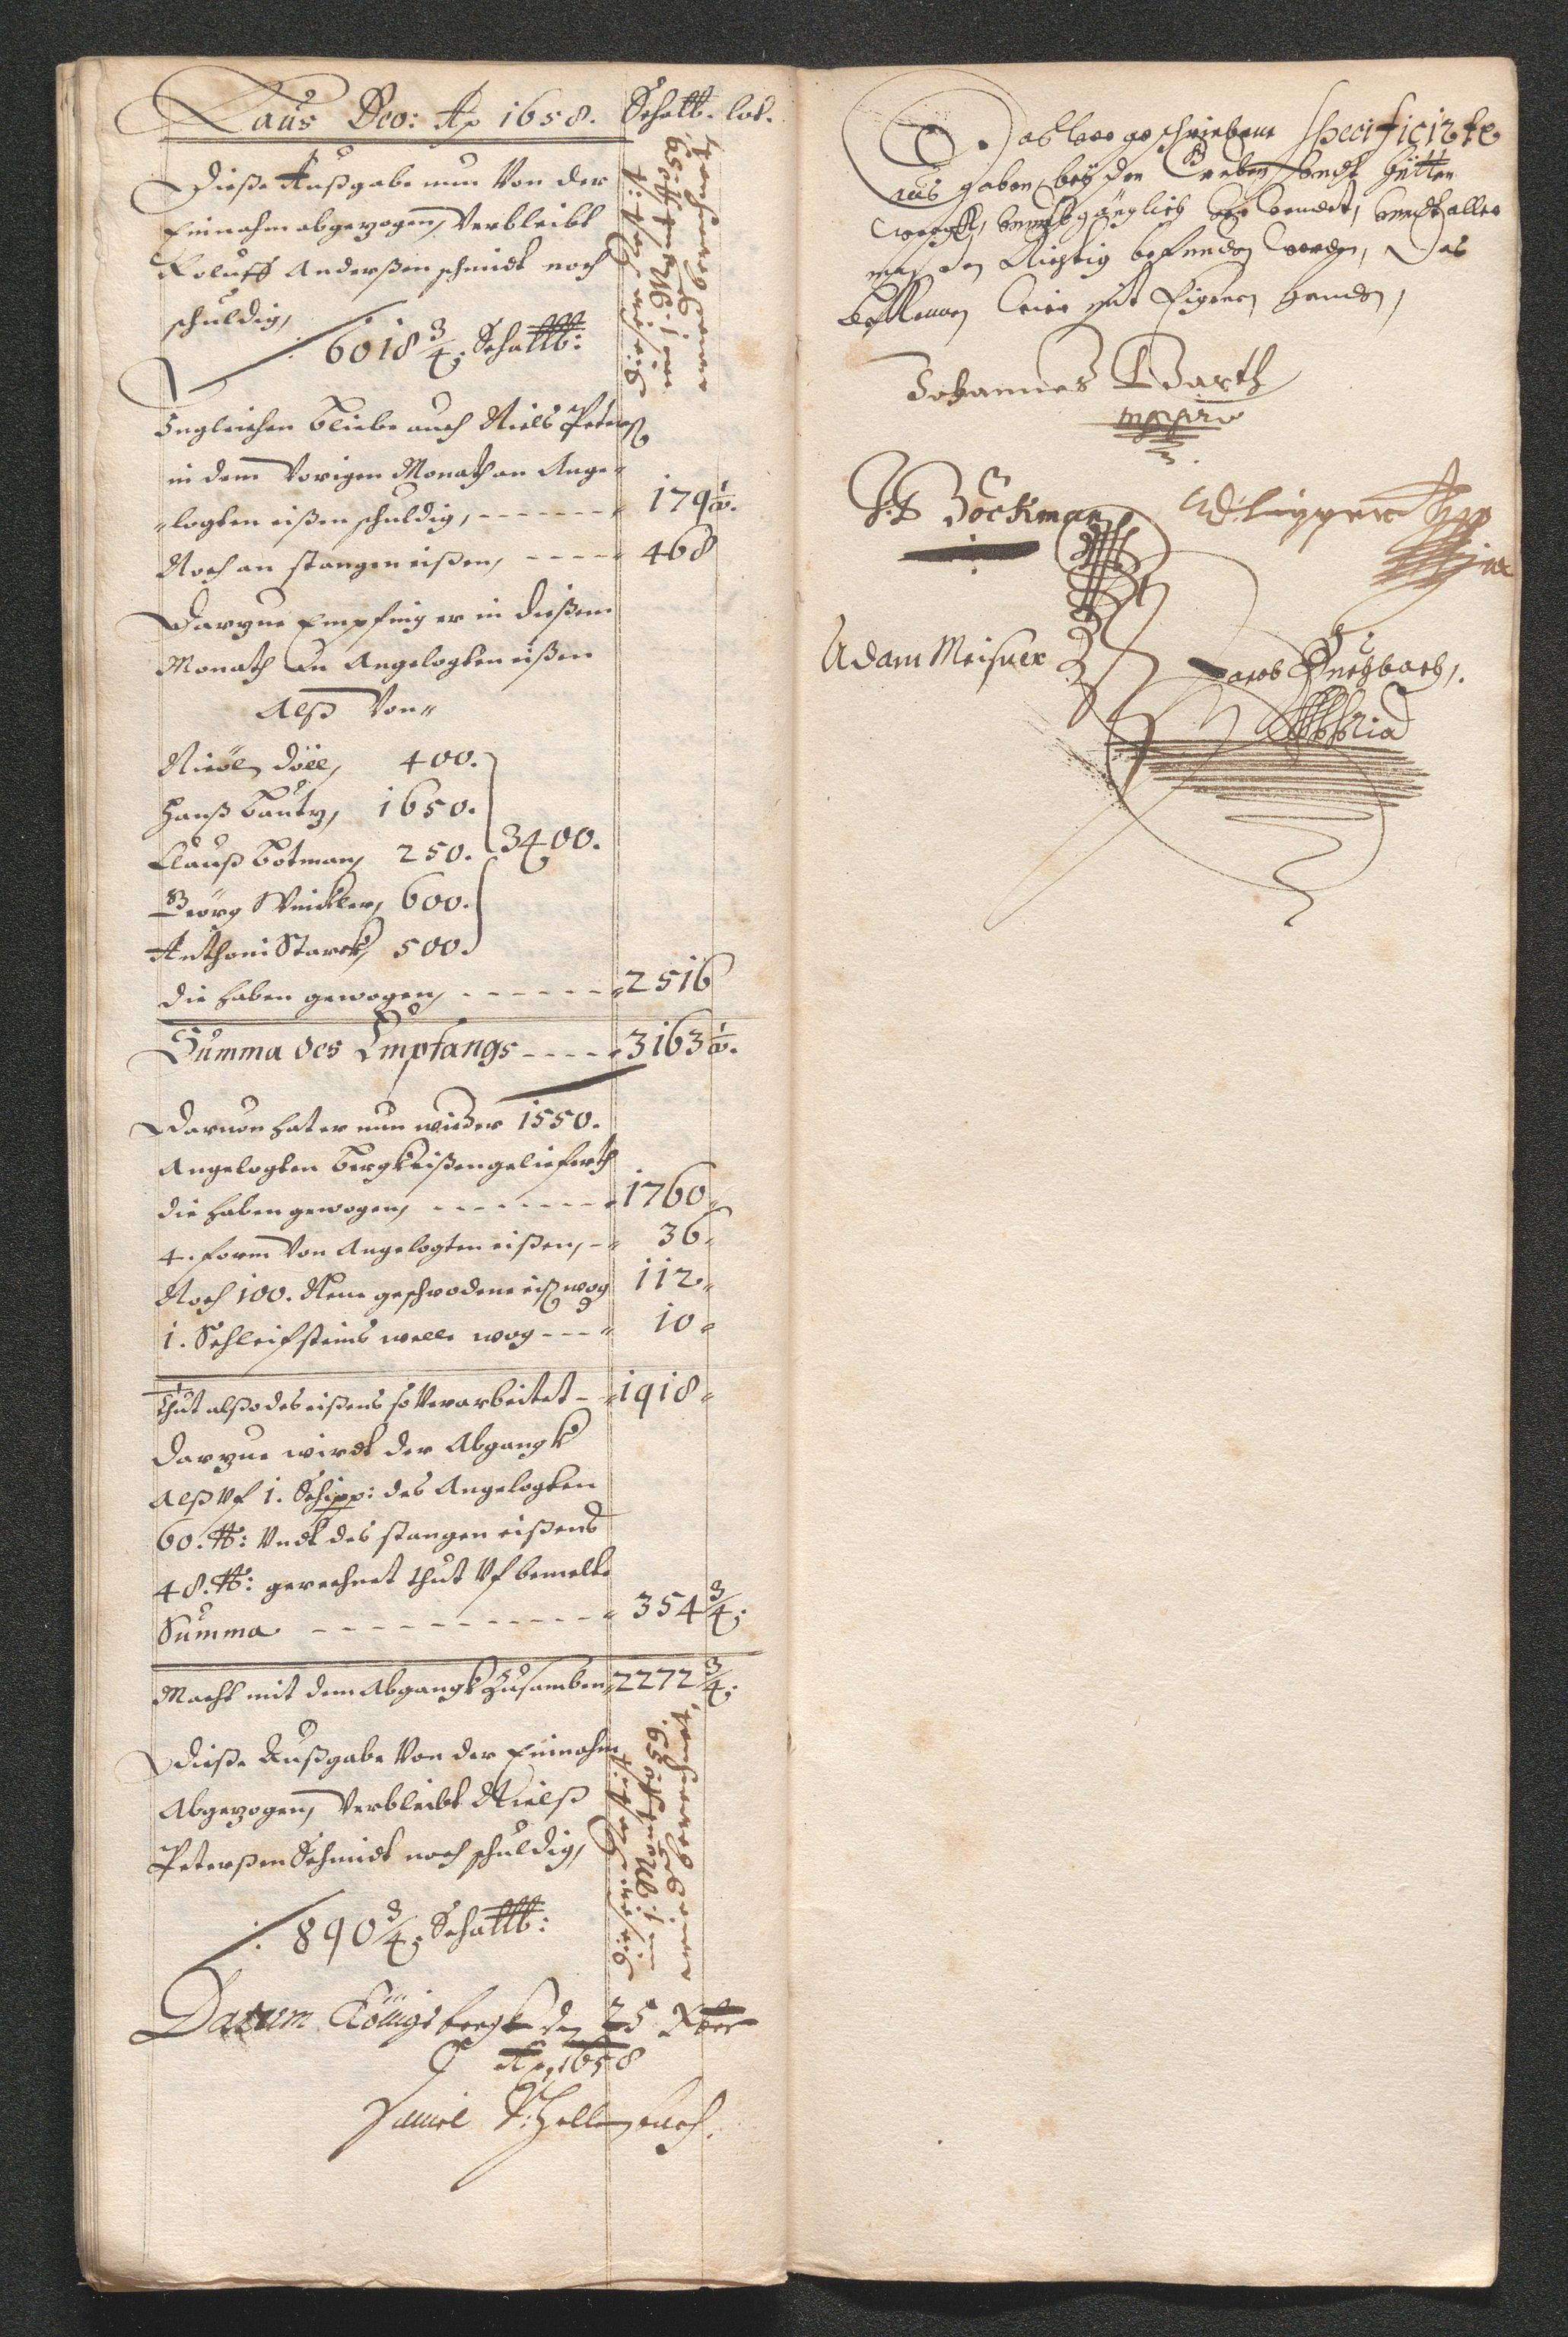 Laus Deo: Ao 1658. Schalb. lod.
Dieße Außgabe nun Von der
Einnahm abgezogen, Verbleibt
Roluff Anderßen schmidt noch
schuldig,
6018 3/4. Schallb:
Ingleichen bliebe auch Niels Peterß
in dem Vorigen Monath an Ange-
-logten eißen schuldig, - - - - - - 179 1/2.
Noch an stangen eißen, - - - - 468
Darzue Empfing er in dießem
Monath an Angelogten eißen
Alß Von
Nicöl Döll, 400.
Hanß Bautz, 1650.
Clauß Botman, 250. 3400.
Georg Winckler, 600.
Anthoni Starck, 500.
die haben gewogen, - - - - - - 2516
Summa des Empfangs - - - - 3163 1/2.
Daruon hat er nun wieder 1550.
Angelogten bergkeißen geliefferth
die haben gewogen, - - - - - - - 1760
4. form Von Angelogten eißen, - 36
Noch 100. Neue geschrodene eiß wog 112
1. Schleifsteins welle wog - - - 10
Thut alßo des eißens so Verarbeitet - 1918
Darzue wirdt der Abgangk
Alß Vf 1. Schipp: des Angelogten
60. ℔: Vndt des stangen eißens
48. ℔: gerechnet thut Vf bemelte
Summa - - - - - - - - - - 354 3/4.
Macht mit dem Abgangk Zusamben 2272 3/4.
Dieße Außgabe Von der Einnahm
Abgezogen, Verbleibt Nielß
Peterßen Schmidt noch schuldig,
890 3/4. Schallb:
Datum Königsbergk den 25 Xber
Ao 1658
Das vorgeschriebene specificirte
aus gaben, bey den Gruben vndt Hütten
wergk, vmbgänglich ver wendet, vnndt aller
massen Richtig befunden worden, Das
bekennen wier mit Eigenen handen,
Johannes Barth
mpprio
Böckman
Adam Meisner
Jacob